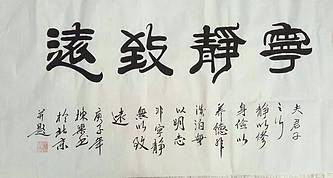 寧靜致遠
夫君子
之行
靜以修
身儉以
养德非
淡泊無
以明志
非寧靜
無以致
遠
庚子年
於北京
并题